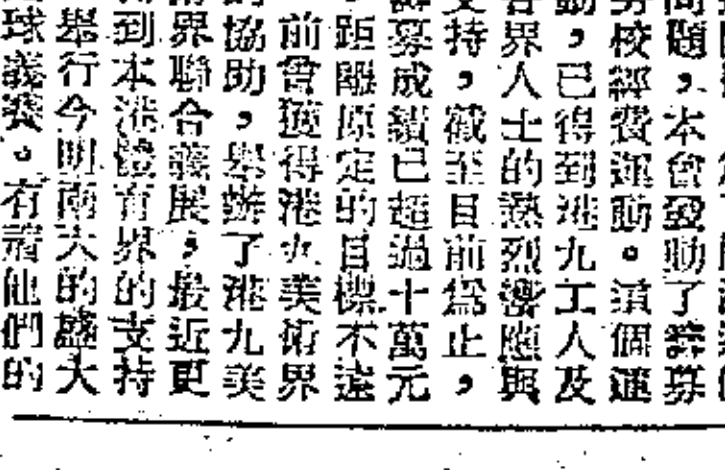 問題，本會發動了籌募
勞校經費運動。這個運
動，已得到港九工人及
各界人士的熱烈響應與
支持，截至目前爲止，
籌募成績已超過十萬元
距離原定的目標不遠
前曾獲得港九美術界
的協助，舉辦了港九美
術界聯合義展，最近更
到本港體育界的支持
舉行今明兩天的盛大
球義賽。有他們的